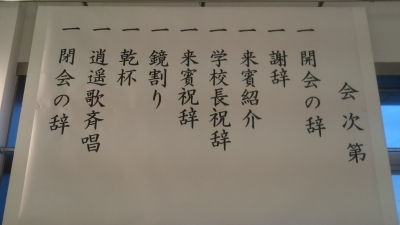 会次第
一 開会の辞
一 謝辞
一 来賓紹介
一 学校長祝辞
一 来賓祝辞
一 鏡割り
一 乾杯
一 逍遥歌斉唱
一 閉会の辞